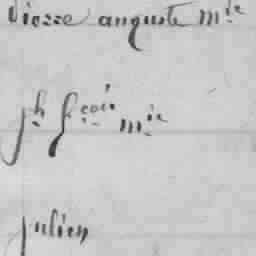 pierre auguste mie
jh fcois mie
julien